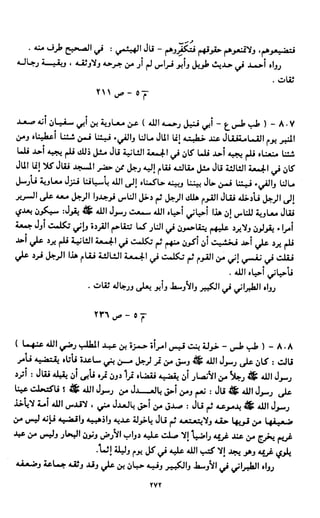 فتضيعوهم، ولا تمنعوهم حقوقهم فتكفروهم - قال الهيثمي : في الصحيح طرف منه .
رواه أحمد في حديث طويل وأبو فراس لم أر من جرحه ولا وثقه ، وبقيـة رجالـه
ثقات .
م٥ - ص ٢١١
٨٠٧ - ( طب طس ع - أبي قبيل رحمـه الله ) عن معاويـة بن أبي سفيـان أنه صعـد
المنبر يوم القمامـة فقال عند خطبتـه إنما المال مالنا والفيء فيئنـا فمن شئنـا أعطينـاه ومن
شئنا منعناه فلم يجبه أحد فلما كان في الجمعة الثانيـة قال مثل ذلك فلم يجبه أحد فلما
كان في الجمعة الثالثة قال مثل مقالته فقام إليه رجل ممن حضر المسجد فقال كلا إنما المال
مالنا والفيء فيئنا فمن حال بيننا وبينه حاكمناه إلى الله بأسيافنا فنزل معاوية فأرسل
إلى الرجل فأدخله فقال القوم هلك الرجل ثم دخل الناس فوجدوا الرجل معه على السرير
فقال معاوية للناس إن هذا أحياني أحياه الله سمعت رسول الله ﷺ يقول: سيكون بعدي
أمراء يقولون ولا يرد عليهم يتقاحمون في النار كما تتقاحم القردة وإني تكلمت أول جمعة
فلم يرد علي أحد فخشيت أن أكون منهم ثم تكلمت في الجمعة الثانية فلم يرد علي أحد
فقلت في نفسي إني من القوم ثم تكلمت في الجمعة الثالثة فقام هذا الرجل فرد علي
فأحياني أحياه الله .
رواه الطبراني في الكبير والأوسط وأبو يعلى ورجاله ثقات .
م٥ - ص ٢٣٦
٨٠٨ - ( طب طس - خولة بنت قيس امرأة حمزة بن عبد المطلب رضي الله عنهما )
قالت : كان على رسول الله ﷺ وسق من تمر لرجل من بني ساعدة فأتاه يقتضيه فأمر
رسول الله ﷺ رجلاً من الأنصار أن يقضيه فقضاه تمراً دون تمره فأبى أن يقبله فقال : أترد
على رسول الله ﷺ قال : نعم ومن أحق بالعـدل من رسول الله ﷺ ؟ فاكتحلت عينا
رسول الله ﷺ بدموعه ثم قال : صدق من أحق بالعدل مني ، لا قدس الله أمة لا يأخذ
ضعيفها من قويها حقه ولا يتعتعه ثم قال يا خولة عديه واذهبيه واقضيه فإنه ليس من
غريم يخرج من عند غريمه راضياً إلا صلت عليه دواب الأرض ونون البحار وليس من عبد
يلوي غريمه وهو يجد إلا كتب الله عليه في كل يوم وليلة إثماً.
رواه الطبراني في الأوسط والكبير وفيه حبان بن علي وقد وثقه جماعة وضعفه
٢٧٢